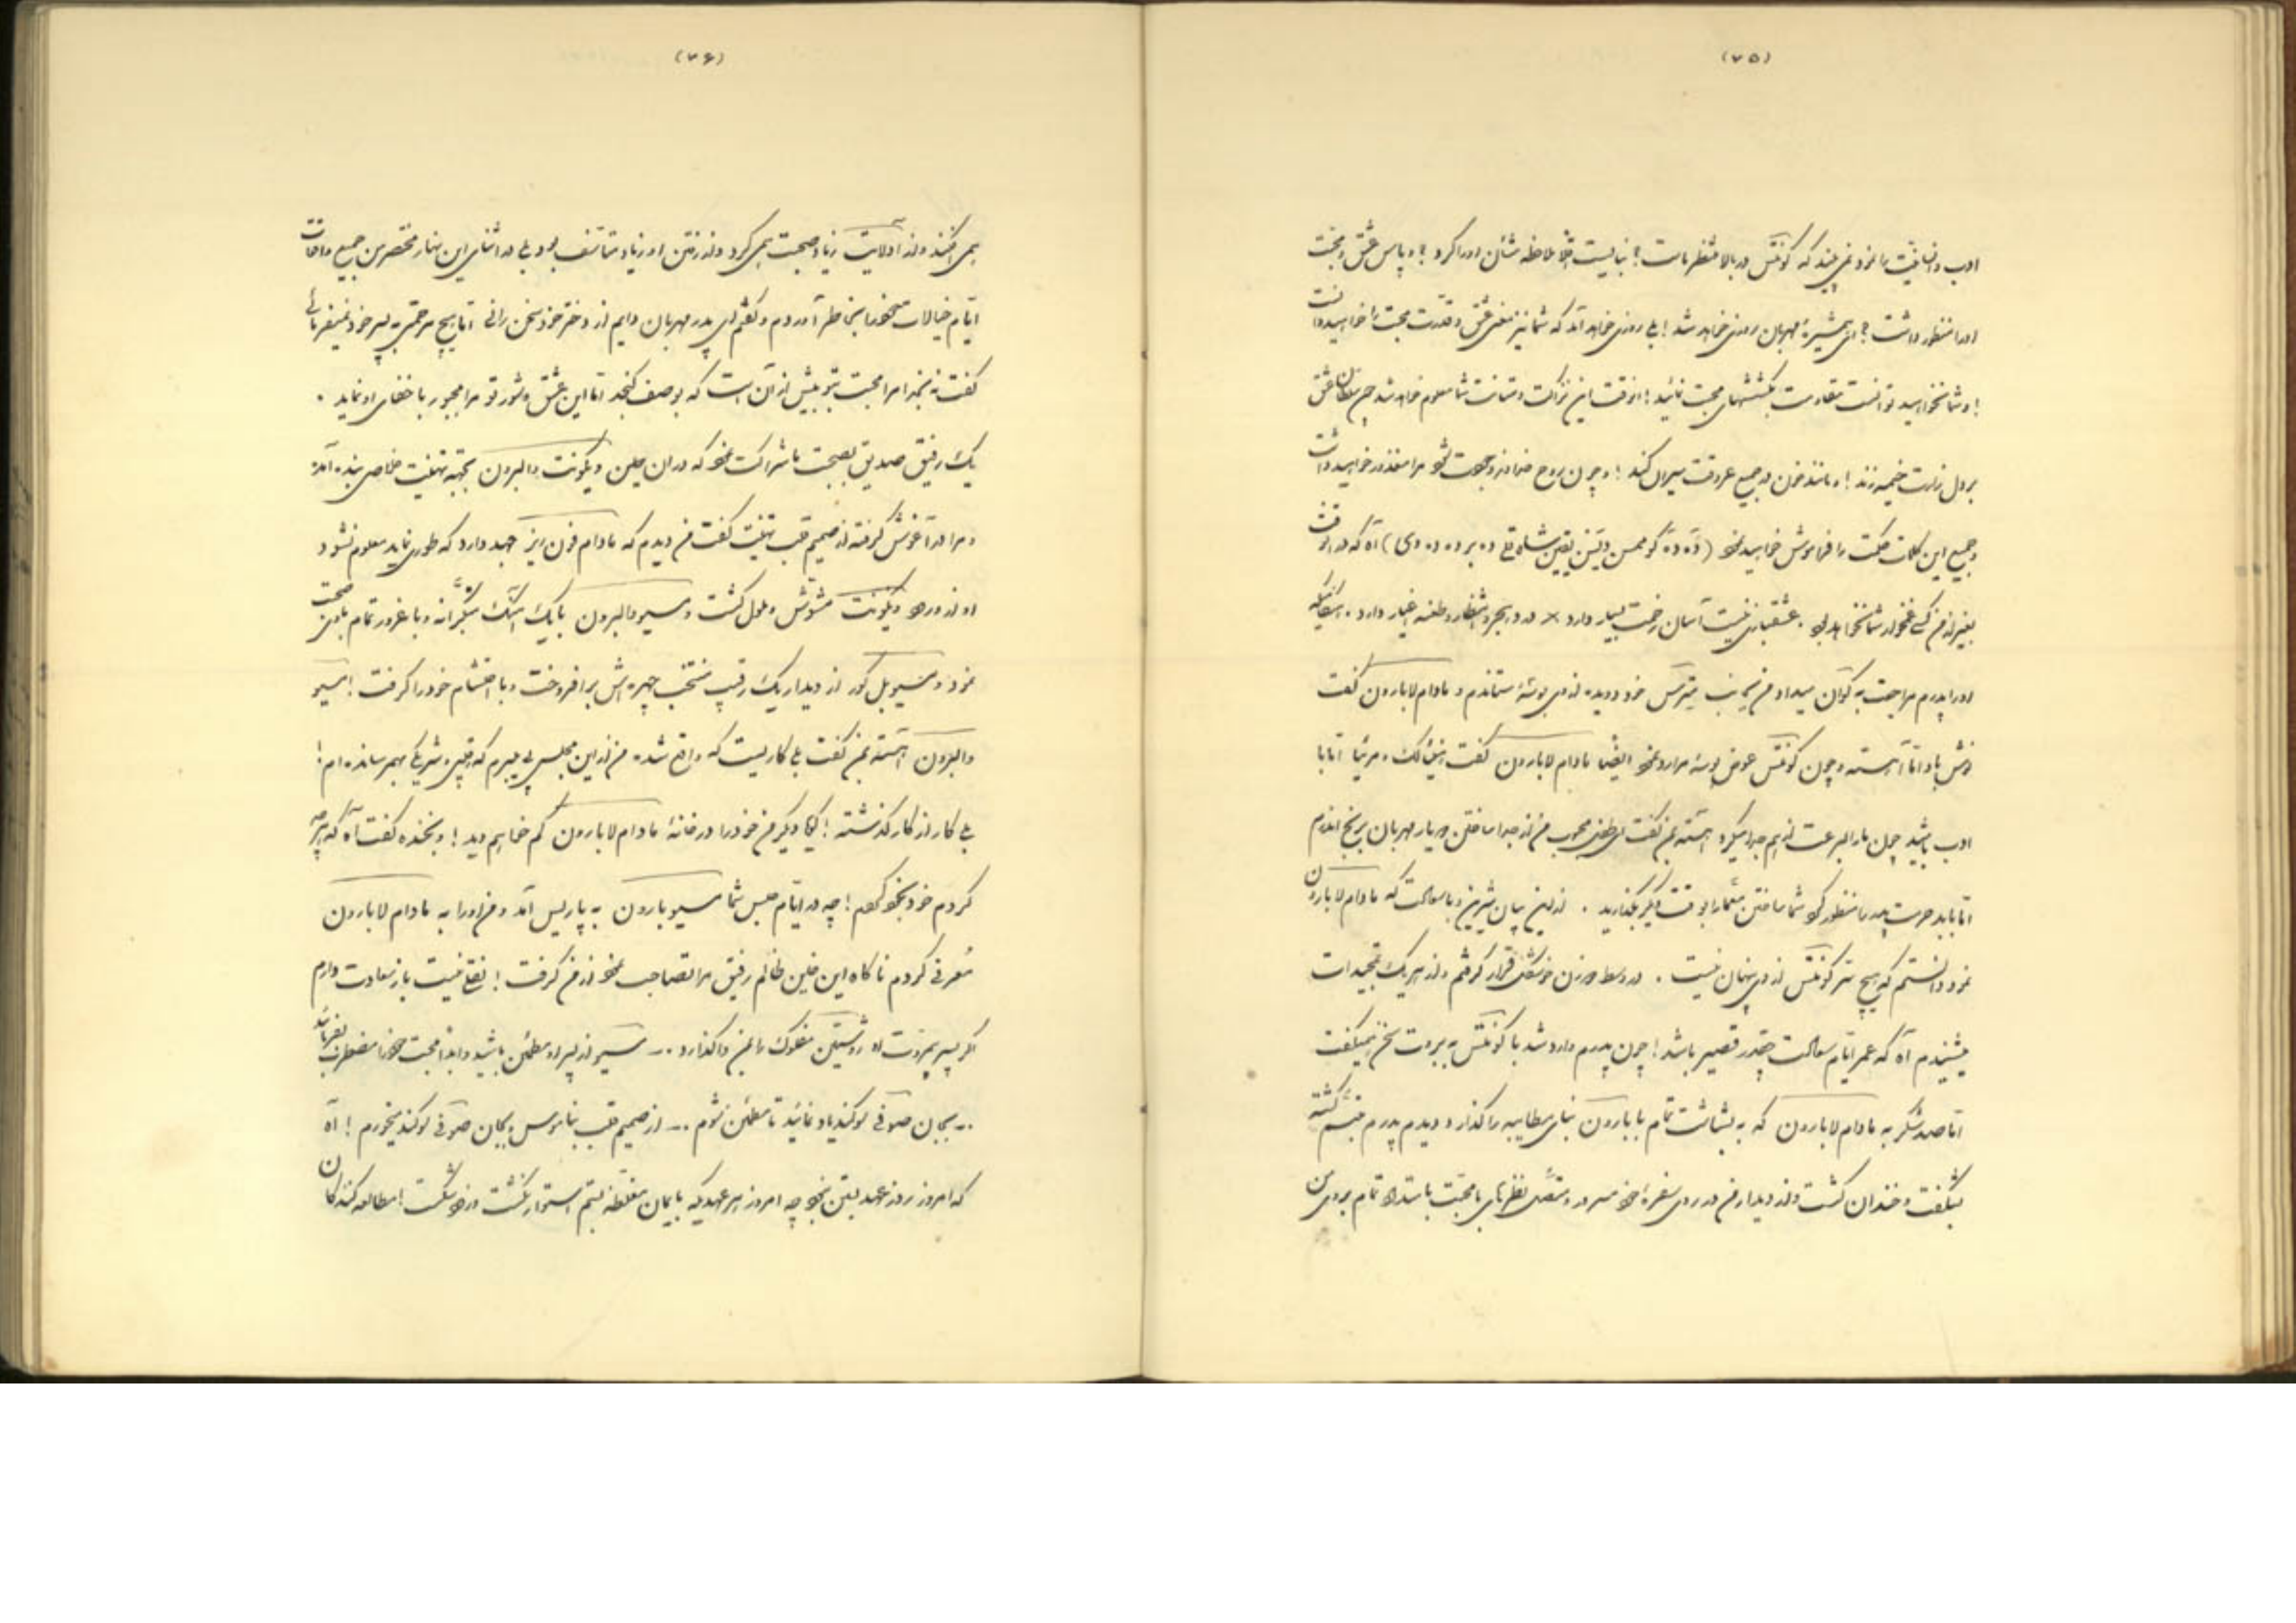 (۷۵)
ادب و انسانیت را نمود نمی‌بیند که کونتس در بالا منتظر ماست؟ نبایست ملاحظه شأن او را کرد؟ و پاس عشق و محبت
او را منظور داشت؟ ای همشیرهٔ مهربان روزی خواهد شد! بلی روزی خواهد آمد که شما نیز معنی عشق و قدرت محبت را خواهید دانست
! و شما نخواهید توانست مقاومت بکششهای محبت نمائید! آنوقت این نزاکت و متانت شما معلوم خواهد شد چون سلطان عشق
بر دل زارت خیمه زند! و مانند خون در جمیع عروقت سیران کند! و چون روح در وجودت شود مرا معذور خواهید داشت
و جمیع این کلمات حکمت را فراموش خواهید نمود ( ده ) آه که در آنوقت
بغیر از من کسی غمخوار شما نخواهد بود . عشقبازی نیست آسان زحمت بسیار دارد × درد هجر و انتظار و طعنه اغیار دارد .
او را پدرم مراجعت به میداد من نیز دویده از وی بوسهٔ ستاندم و مادام لابارون گفت
نوش باد اما آهسته و چون کونتس عوض بوسهٔ مرا رد نمود ایضا مادام لابارون گفت اما با
ادب باشید چون ما را بسرعت از هم جدا میکرد آهسته بمن گفت ای طفل محبوب من از جدا ساختن دو یار مهربان برنج اندرم
اما باید حرمت پدر را منظور کرد شما ساختن را بوقت دیگر بگذارید . از این بیان شیرین و با ملاحت که مادام لابارون
نمود دانستم که هیچ سر کونتس از وی پنهان نیست . در وسط دو زن خوشگل قرار گرفتم و از هر یک تمجیدات
میشنیدم آه که عمر ایام سعادت چقدر قصیر باشد! چون پدرم وارد شد با کونتس به برودت سخن همیگفت
اما صد شکر به مادام لابارون که به بشاشت تمام با بارون بنای مطایبه را گذارد و دیدم پدرم متبسم گشته
بشگفت و خندان گشت و از دیدار من در روی سفره مسرور و متصل نظرهای با محبت تمام بر روی من
(۷۶)
همی افکند و از آدلائیت زیاد صحبت همی کرد و از رفتن او زیاد متأسف بود بلی در اثنای این نهار مختصر من جمیع واقعات
ایام خیالات خود را بخاطر آوردم و گفتم ای پدر مهربان دایم از دختر خود سخن رانی اما هیچ مرحمتی به پسر خود نمیفرمائی
گفت نه بخدا مرا محبت بتو بیش از آن است که بوصف گنجد اما این عشق و شور تو مرا مجبور باخفای او نماید .
یک رفیق صدیق بصحبت ما شراکت نمود که در آن حین ویکونت والبرون بجهت تهنیت خلاصی بنده آمد
و مرا در آغوش گرفته از صمیم قلب تهنیت گفت من دیدم که مادام فون ریز جهد دارد که طوری نماید معلوم نشود
او از ورود ویکونت مشوش و ملول گشت و مسیو والبرون با یک اشک متکبرانه و با غرور تمام با من صحبت
نمود و مسیو بل کور از دیدار یک رقیب منتخب چهره‌اش برافروخت و با احتشام خود را گرفت! مسیو
والبرون آهسته بمن گفت بلی کاریست که واقع شده من از این مجلس پی میبرم که رقیبی و شریکی بهم رسانده‌ام!
بلی کار از کار گذشته! دیگر من خود را در خانهٔ مادام لابارون کم خواهم دید! و بخنده گفت آه که هر چه
کردم خود بخود کردم! چه در ایام حبس شما مسیو بارون به پاریس آمد و من او را به مادام لابارون
معرفی کردم ناگاه این خاین ظالم رفیق مرا تصاحب نمود از من گرفت! نقلی نیست باز سعادت دارم
اگر پسر بیمروت او روشتین مفلوک را بمن واگذارد ... مسیو از پسر او مطمئن باشید و ابدا محبت خود را مضطرب نفرمائید
... بجان صوفی سوگند یاد نمائید تا مطمئن شوم ... از صمیم قلب بناموس و بجان صوفی سوگند میخورم! آه
که امروز روز عهد بستن بود چه امروز هر عهدیکه با ایمان مغلظه بستم استوار نگشت و زود شکست! مطالعه کنندگان